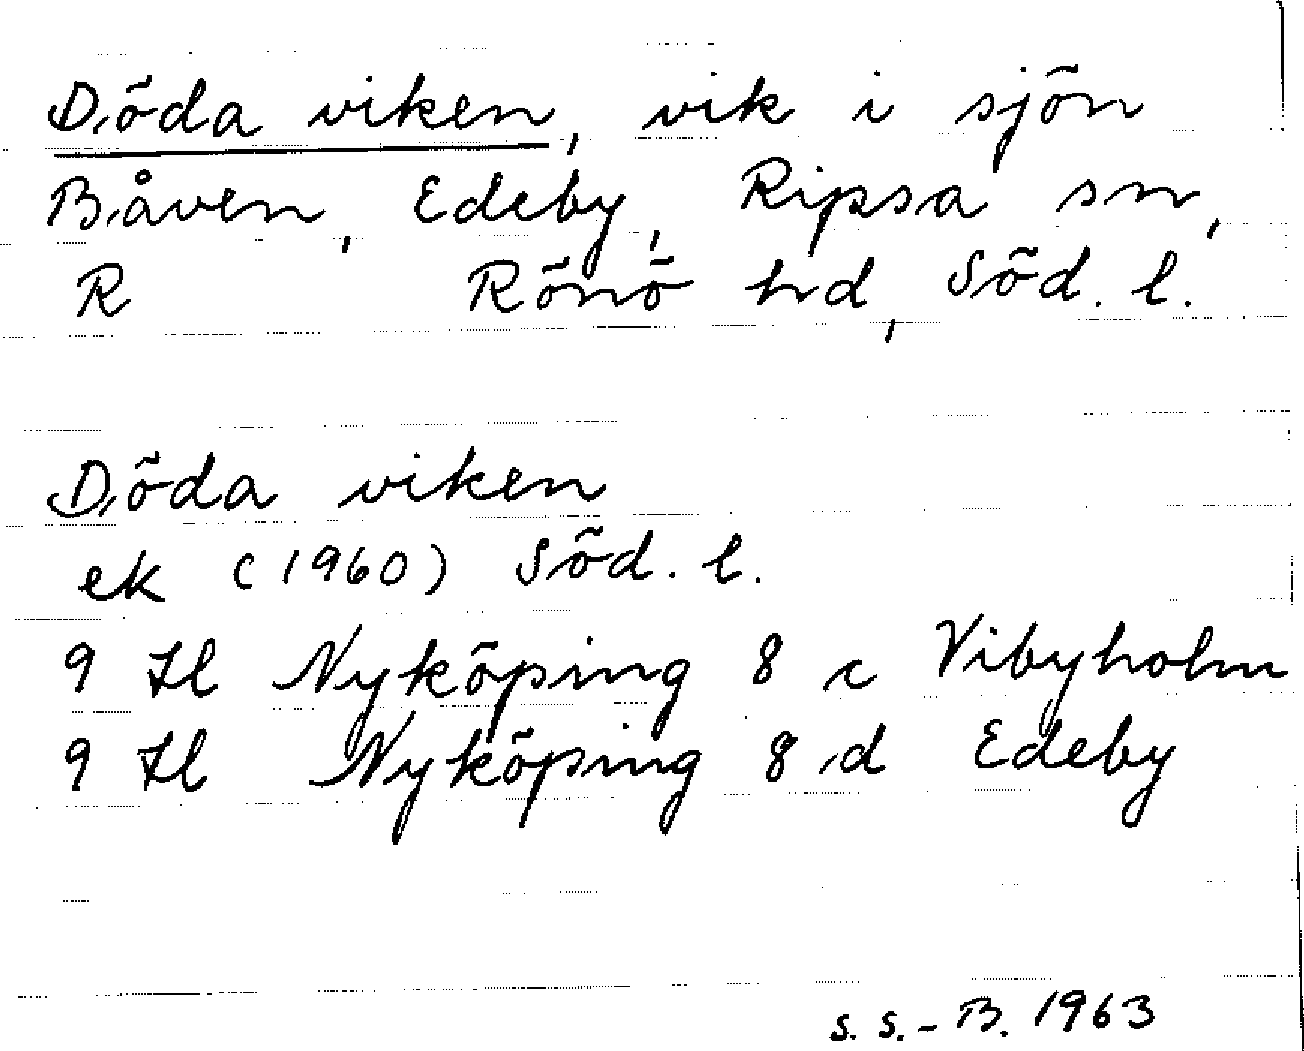 Döda viken, vik i sjön
Båven, Edeby, Ripsa sn,
R Rönö hd, Söd. l.
Döda viken
ek (1960) Söd. l.
9 H Nyköping 8 c Vibyholm
9 H Nyköping 8 d Edeby
S. S.-B. 1963